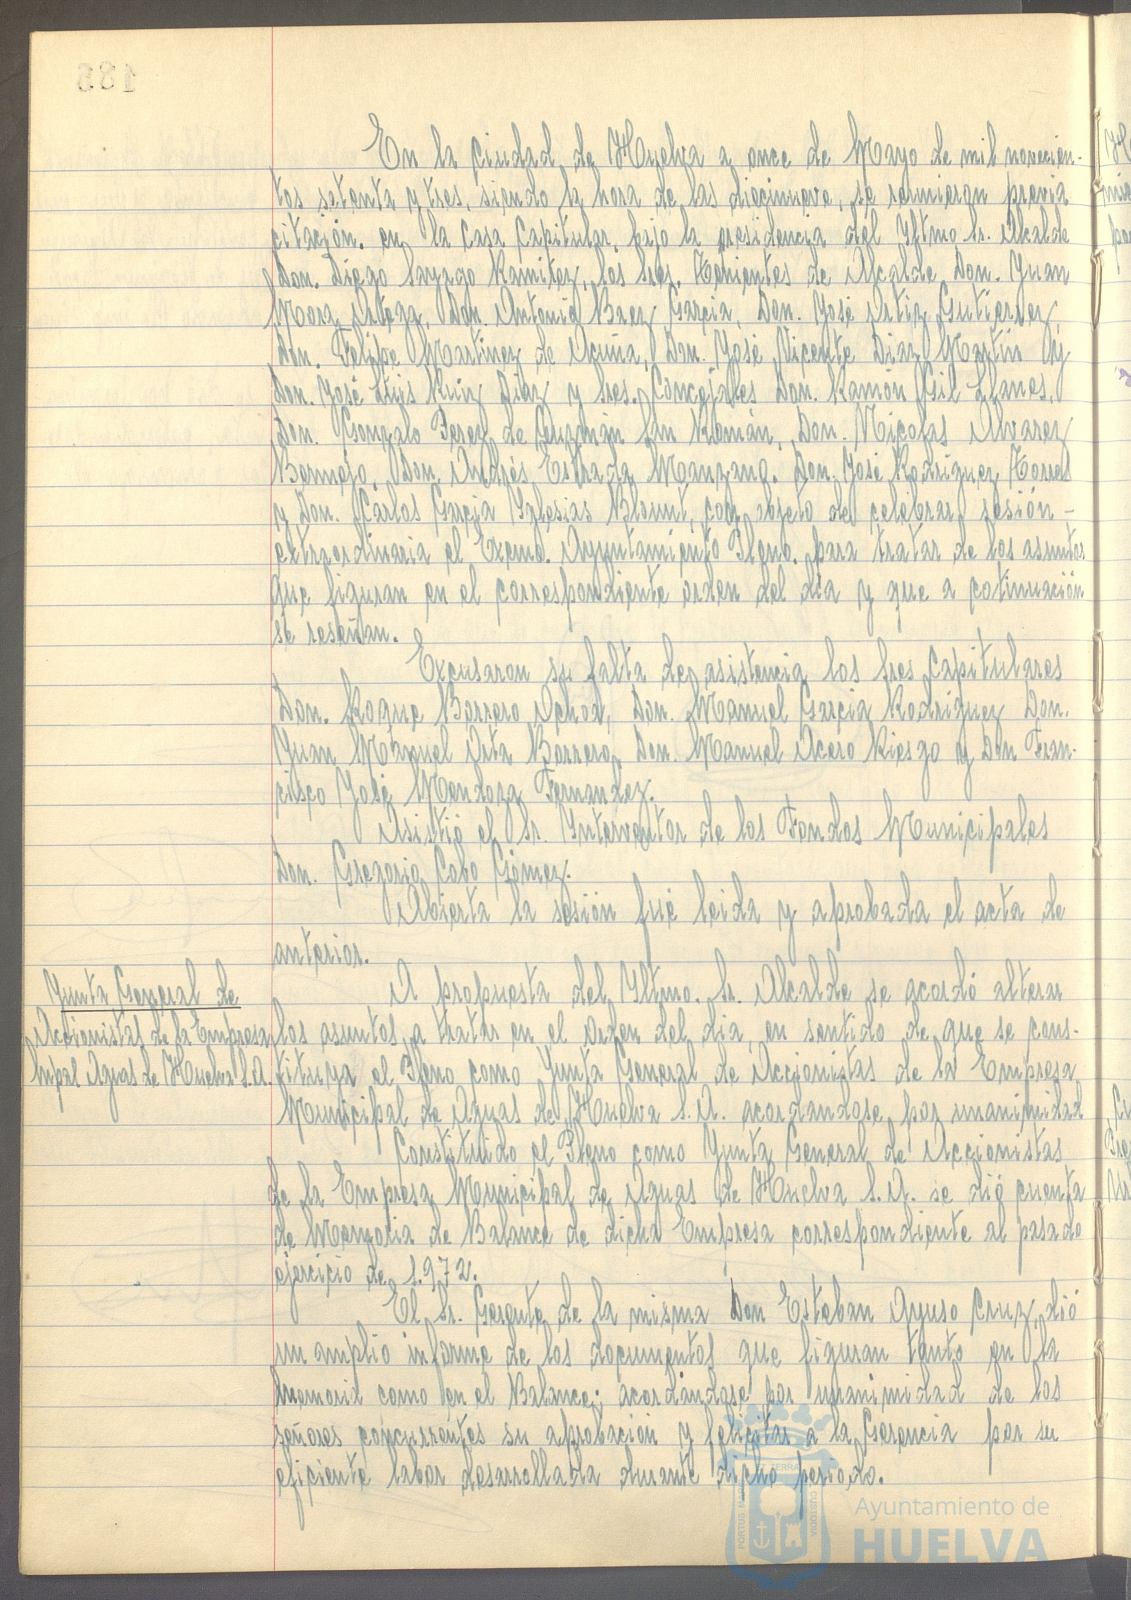 185
En la Ciudad de Huelva a once de Mayo de mil novecien-
tos setenta y tres, siendo la hora de las diecinueve, se reunieron previa
citación. en la Casa Capitular, bajo la presidencia del Iltmo Sr. Alcalde
Don. Diego Sayago Ramírez, los Sres. Tenientes de Alcalde, Don. Juan
Mora Arteaga, Don. Antonio Baez García, Don. José Ortiz Gutierrez,
Don. Felipe Martinez de Acuña, Don. José Vicente Diaz Martín y
Don. José Luis Ruiz Díaz y Sres. Concejales Don. Ramón Gil Llanes,
Don. Gonzalo Perez de Guzmán San Román, Don. Nicolas Alvarez
Bermejo, Don, Andrés Estrada Manzano. Don. José Rodriguez Torres
y Don. Carlos García Iglesias Blount, con objeto de celebrar sesión -
extraordinaria el Excmo. Ayuntamiento Pleno. para tratar de los asuntos
que figuran en el correspondiente orden del día y que a cotinuación
se reseñan.
Excusaron su falta de asistencia los Sres Capitulares
Don. Roque Borrero Ochoa, Don. Manuel García Rodriguez Don.
Juan Manuel Orta Borrero, Don. Manuel Acero Riesgo y Don Fran-
cisco José Mendoza Fernandez.
Asistió el Sr. Interventor de los Fondos Municipales
Don. Gregorio Cobo Gómez.
Abierta la sesión fué leida y aprobada el acta de
anterior.
Junta General de
Accionistas de la Empresa
Mpal Aguas de Huelva S.A.
A propuesta del Iltmo. Sr. Alcalde se acordó alterar
los asuntos, a tratar en el Orden del dia, en sentido de que se cons-
tituya el Pleno como Junta General de Accionistas de la Empresa
Municipal de Aguas de Huelva S.A. acordandose, por unanimidad
Constituido el Pleno como Junta General de Accionistas
de la Empresa Municipal de Aguas de Huelva S.A. se dió cuenta
de Memoria de Balance de dicha Empresa correspondiente al pasado
ejercicio de 1.972.
El Sr. Gerente de la misma Don Esteban Ayuso Cruz, dió
un amplio informe de los documentos que figuran tanto en la
Memoria como en el Balance; acordándose por unanimidad de los
señores concurrentes su aprobación y felicitar a la Gerencia por su
eficiente labor desarrollada durante dicho periodo.
PORTUS MARIS ET TERRAE CUSTODIA
Ayuntamiento de
HUELVA